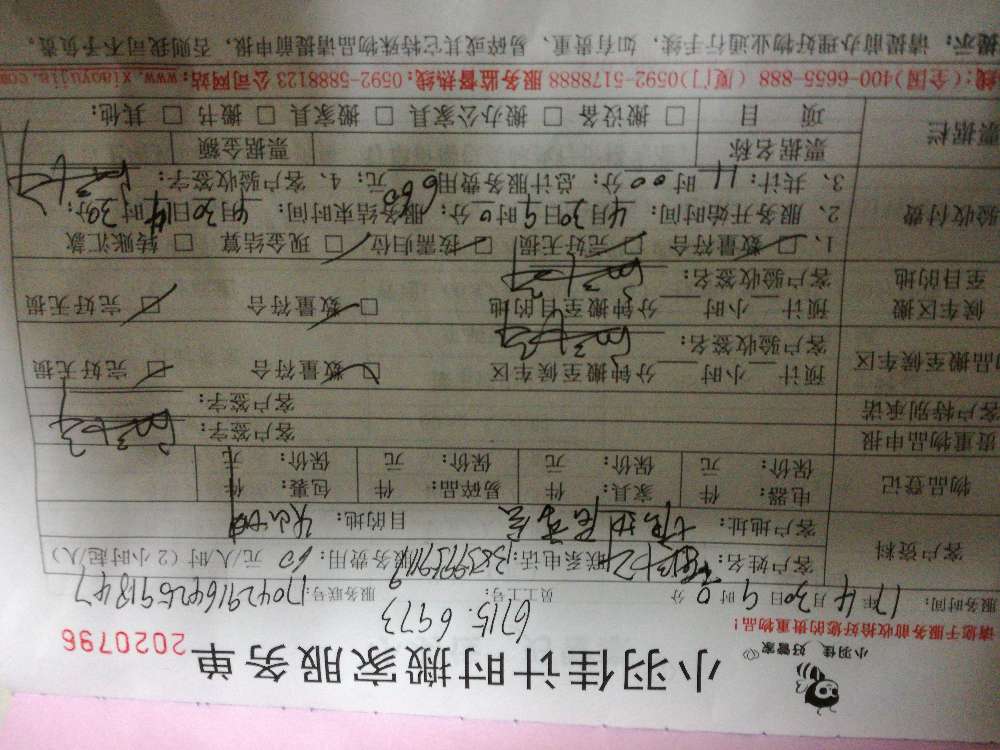 小羽佳计时搬家服务单
小羽佳 好管家
2020796
请您于服务前收拾好您的贵重物品！
6715.6973
服务时间：17年4月30日9时0分 员工工号： 服务账号：
客户资料
客户姓名： 联系电话： 服务费用：60元/人/时（2小时起/人）
客户地址： 目的地：
物品登记
电器： 件 家具： 件 易碎品： 件 包裹： 件
保价： 元 保价： 元 保价： 元 保价： 元
贵重物品申报 客户签字：
客户特别承诺 客户签字：
物品搬至候车区
预计 小时 分钟搬至候车区 数量符合 完好无损
客户验收签名：
候车区搬至目的地
预计 小时 分钟搬至目的地 数量符合 完好无损
客户验收签名：
验收付费
1、数量符合 完好无损 按需归位 现金结算 转账汇款
2、服务开始时间：4月30日9时0分；服务结束时间：4月30日14时30分；
3、共计：11时00分；总计服务费用660元；4、客户验收签字：
票据栏
票据名称 票据金额
项目 搬设备 搬办公家具 搬家具 搬书 其他：
线：(全国)400-6655-888 (厦门)0592-5178888 服务监督热线：0592-5888123 公司网站：www.xiaoyujia.com
提示：请提前办理好物业通行手续，如有贵重、易碎或其它特殊物品请提前申报，否则我司不予负责。